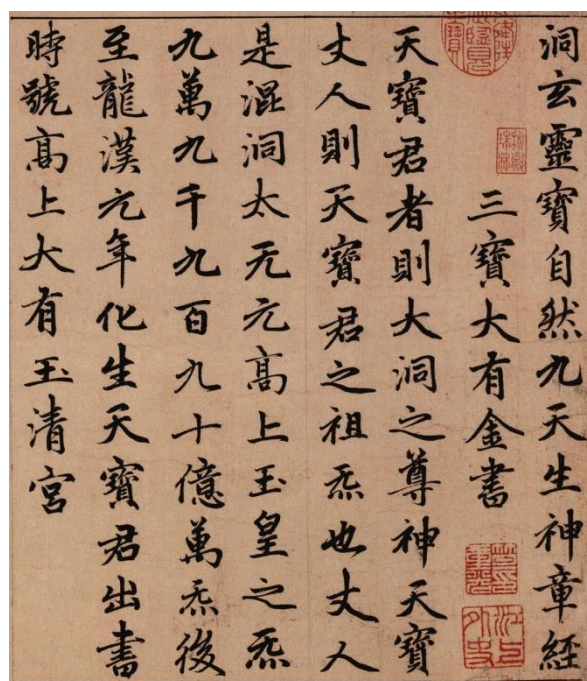 洞玄靈寶自然九天生神章經
三寶大有金書
天寶君者則大洞之尊神天寶
丈人則天寶君之祖炁也丈人
是混洞太无元高上玉皇之炁
九萬九千九百九十億萬炁後
至龍漢元年化生天寶君出書
時號高上大有玉清宮